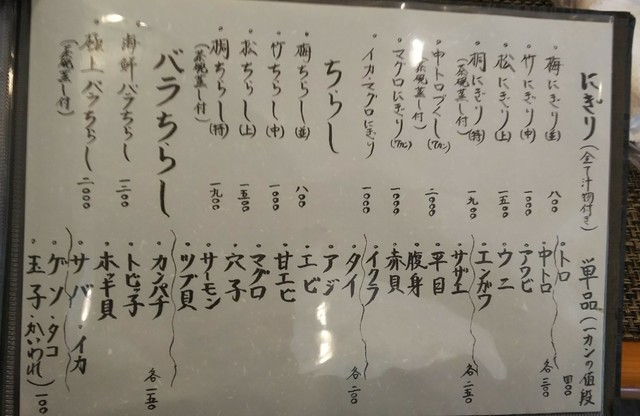 にぎり(全て汁物付き)
・梅にぎり(並) 八〇〇
・竹にぎり(中) 一〇〇〇
・松にぎり(上) 一五〇〇
・桐にぎり(特) 一九〇〇
(茶碗蒸し付)
・中トロづくし(7カン) 二〇〇〇
(茶碗蒸し付)
・マグロにぎり(7カン) 一〇〇〇
・イカマグロにぎり 一〇〇〇
ちらし
・梅ちらし(並) 八〇〇
・竹ちらし(中) 一〇〇〇
・松ちらし(上) 一五〇〇
・桐ちらし(特) 一九〇〇
(茶碗蒸し付)
バラちらし
・海鮮バラちらし 一二〇〇
・極上バラちらし 二〇〇〇
(茶碗蒸し付)
単品(一カンの値段)
・トロ 四〇〇
・中トロ 各三〇〇
・アワビ
・ウニ
・エンガワ 各二五〇
・サザエ
・平目
・腹身
・赤貝
・イクラ
・タイ 各二〇〇
・アジ
・エビ
・甘エビ
・マグロ
・穴子
・サーモン
・ツブ貝
・カンパチ 各一五〇
・トビッ子
・ホッキ貝
・サバ・イカ
・ゲソ・タコ
・玉子・かいわれ) 一〇〇